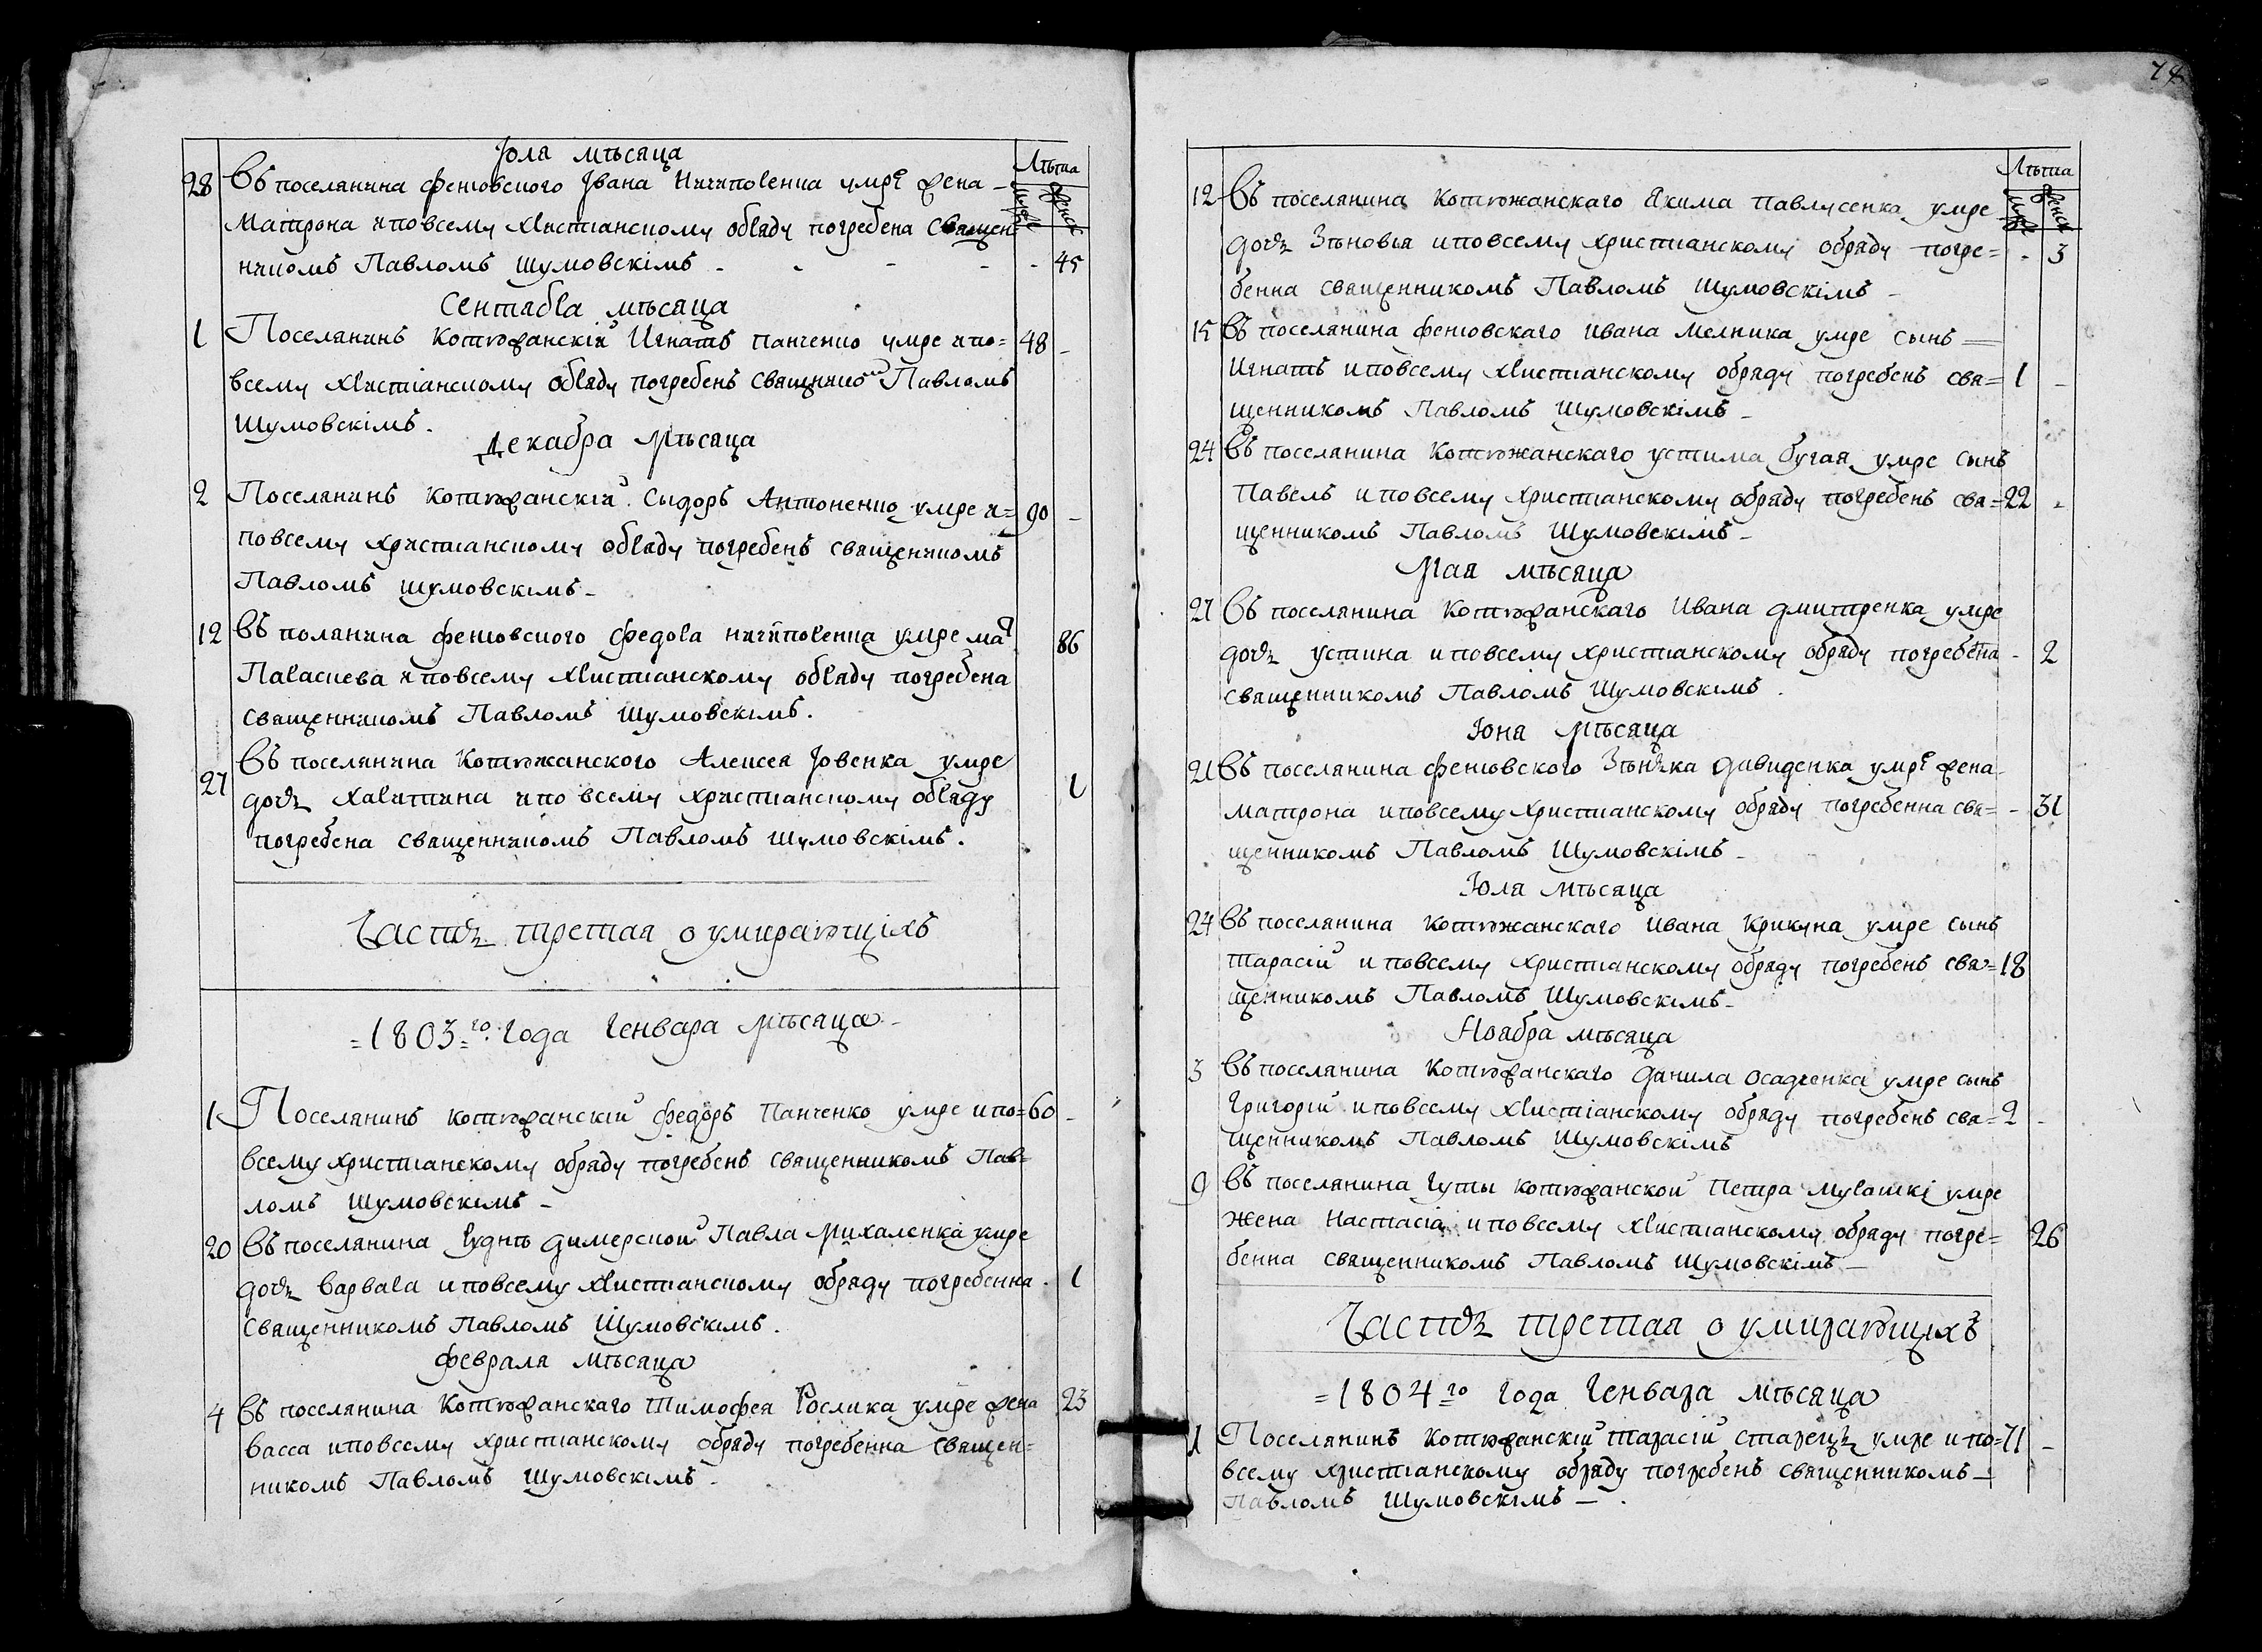 Іюля мѣсяца
Лѣта
28 Въ поселянина фенювского Ивана Ничипоренка умре жена
муже женск
Матрона и повсему христианскому обряду погребена священ
никомъ Павломъ Шумовскімъ - 45
Сентабра мѣсяца
1 Поселянинъ котюжанскій Игнатъ панченко умре и по= 48 -
всему христіанскому обряду погребенъ священикомъ Павломъ
Шумовскімъ.
Декабра мѣсяца
2 Поселянинъ котюжанскій Сыдоръ Антоненко умре и= 90 -
повсему христианскому обряду погребенъ священикомъ
Павломъ шумовскимъ -
12 Въ поланина фенювского федора ничипоренка умре мат 86
Параскева и повсему христианскому обряду погребена
священникомъ Павломъ Шумовскімъ.
27 Въ поселянина Котюжанского Алексея Іовенка умре 1
дочъ Харитина и по всему христианскому обряду
погребена священникомъ Павломъ Шумовскімъ.
Частъ третая о умирающіхъ
= 1803 = го. Года Генвара мѣсяца -
1 Поселянинъ котюжанскій федоръ Панченко умре и по= 60 -
всему христианскому обряду погребенъ священникомъ Пав=
ломъ Шумовскімъ -
20 Въ поселянина Рудни димерской Павла Михаленка умре
дочъ варвара и повсему христианскому обряду погребенна . 1
священникомъ Павломъ Шумовскімъ.
феврала мѣсяца
4 Въ поселянина Котюжанскаго Тимофея Рослика умре жена 23
васса и повсему христианскому обряду погребенна священ=
никомъ Павломъ Шумовскімъ -
74
Лѣта
12 Въ поселянина Котюжанскаго Якима павлусенка умре
муже женск
дочъ Зѣновья и повсему христианскому обряду погре= - 3
бенна священникомъ Павломъ Шумовскімъ -
15 Въ поселянина фенювскаго ивана мелника умре сынъ
Игнатъ и повсему христианскому обряду погребенъ свя= 1 -
щенникомъ Павломъ Шумовскімъ -
24 Въ поселянина Котюжанскаго устима бугая умре сынъ
Павелъ и повсему христианскому обряду погребенъ свя= 22 -
щенникомъ Павломъ Шумовскімъ -
Мая мѣсяца
21 Въ поселянина котюжанскаго Ивана дмитренка умре
дочъ устина и повсему христианскому обряду погребена - 2
священникомъ Павломъ Шумовскімъ .
Іюна мѣсяца
21 Въ поселянина фенювского Зѣнька давиденка умре жена
матрона и повсему христианскому обряду погребенна свя= - 31
щенникомъ Павломъ Шумовскімъ -
Іюля мѣсяца
24 Въ поселянина котюжанскаго ивана Крикуна умре сынъ
тарасій и повсему христианскому обряду погребенъ свя= 18
щенникомъ Павломъ Шумовскімъ -
Ноабра мѣсяца
3 Въ поселянина Котюжанскаго данила осадченка умре сынъ
Григорій и повсему христіанскому обряду погребенъ свя= 2 -
щенникомъ Павломъ Шумовскімъ
9 Въ поселянина гуты котюжанской Петра мурашкі умре
жена настасіа и повсему христианскому обряду погре= 26
бенна священникомъ Павломъ Шумовскімъ -
Частъ третая о умирающіхъ
= 1804 = го Года Генвара мѣсяца
1 Поселянинъ котюжанскій тарасій старецъ умре и по= 71 -
всему христианскому обряду погребенъ священникомъ -
Павломъ Шумовскімъ - .